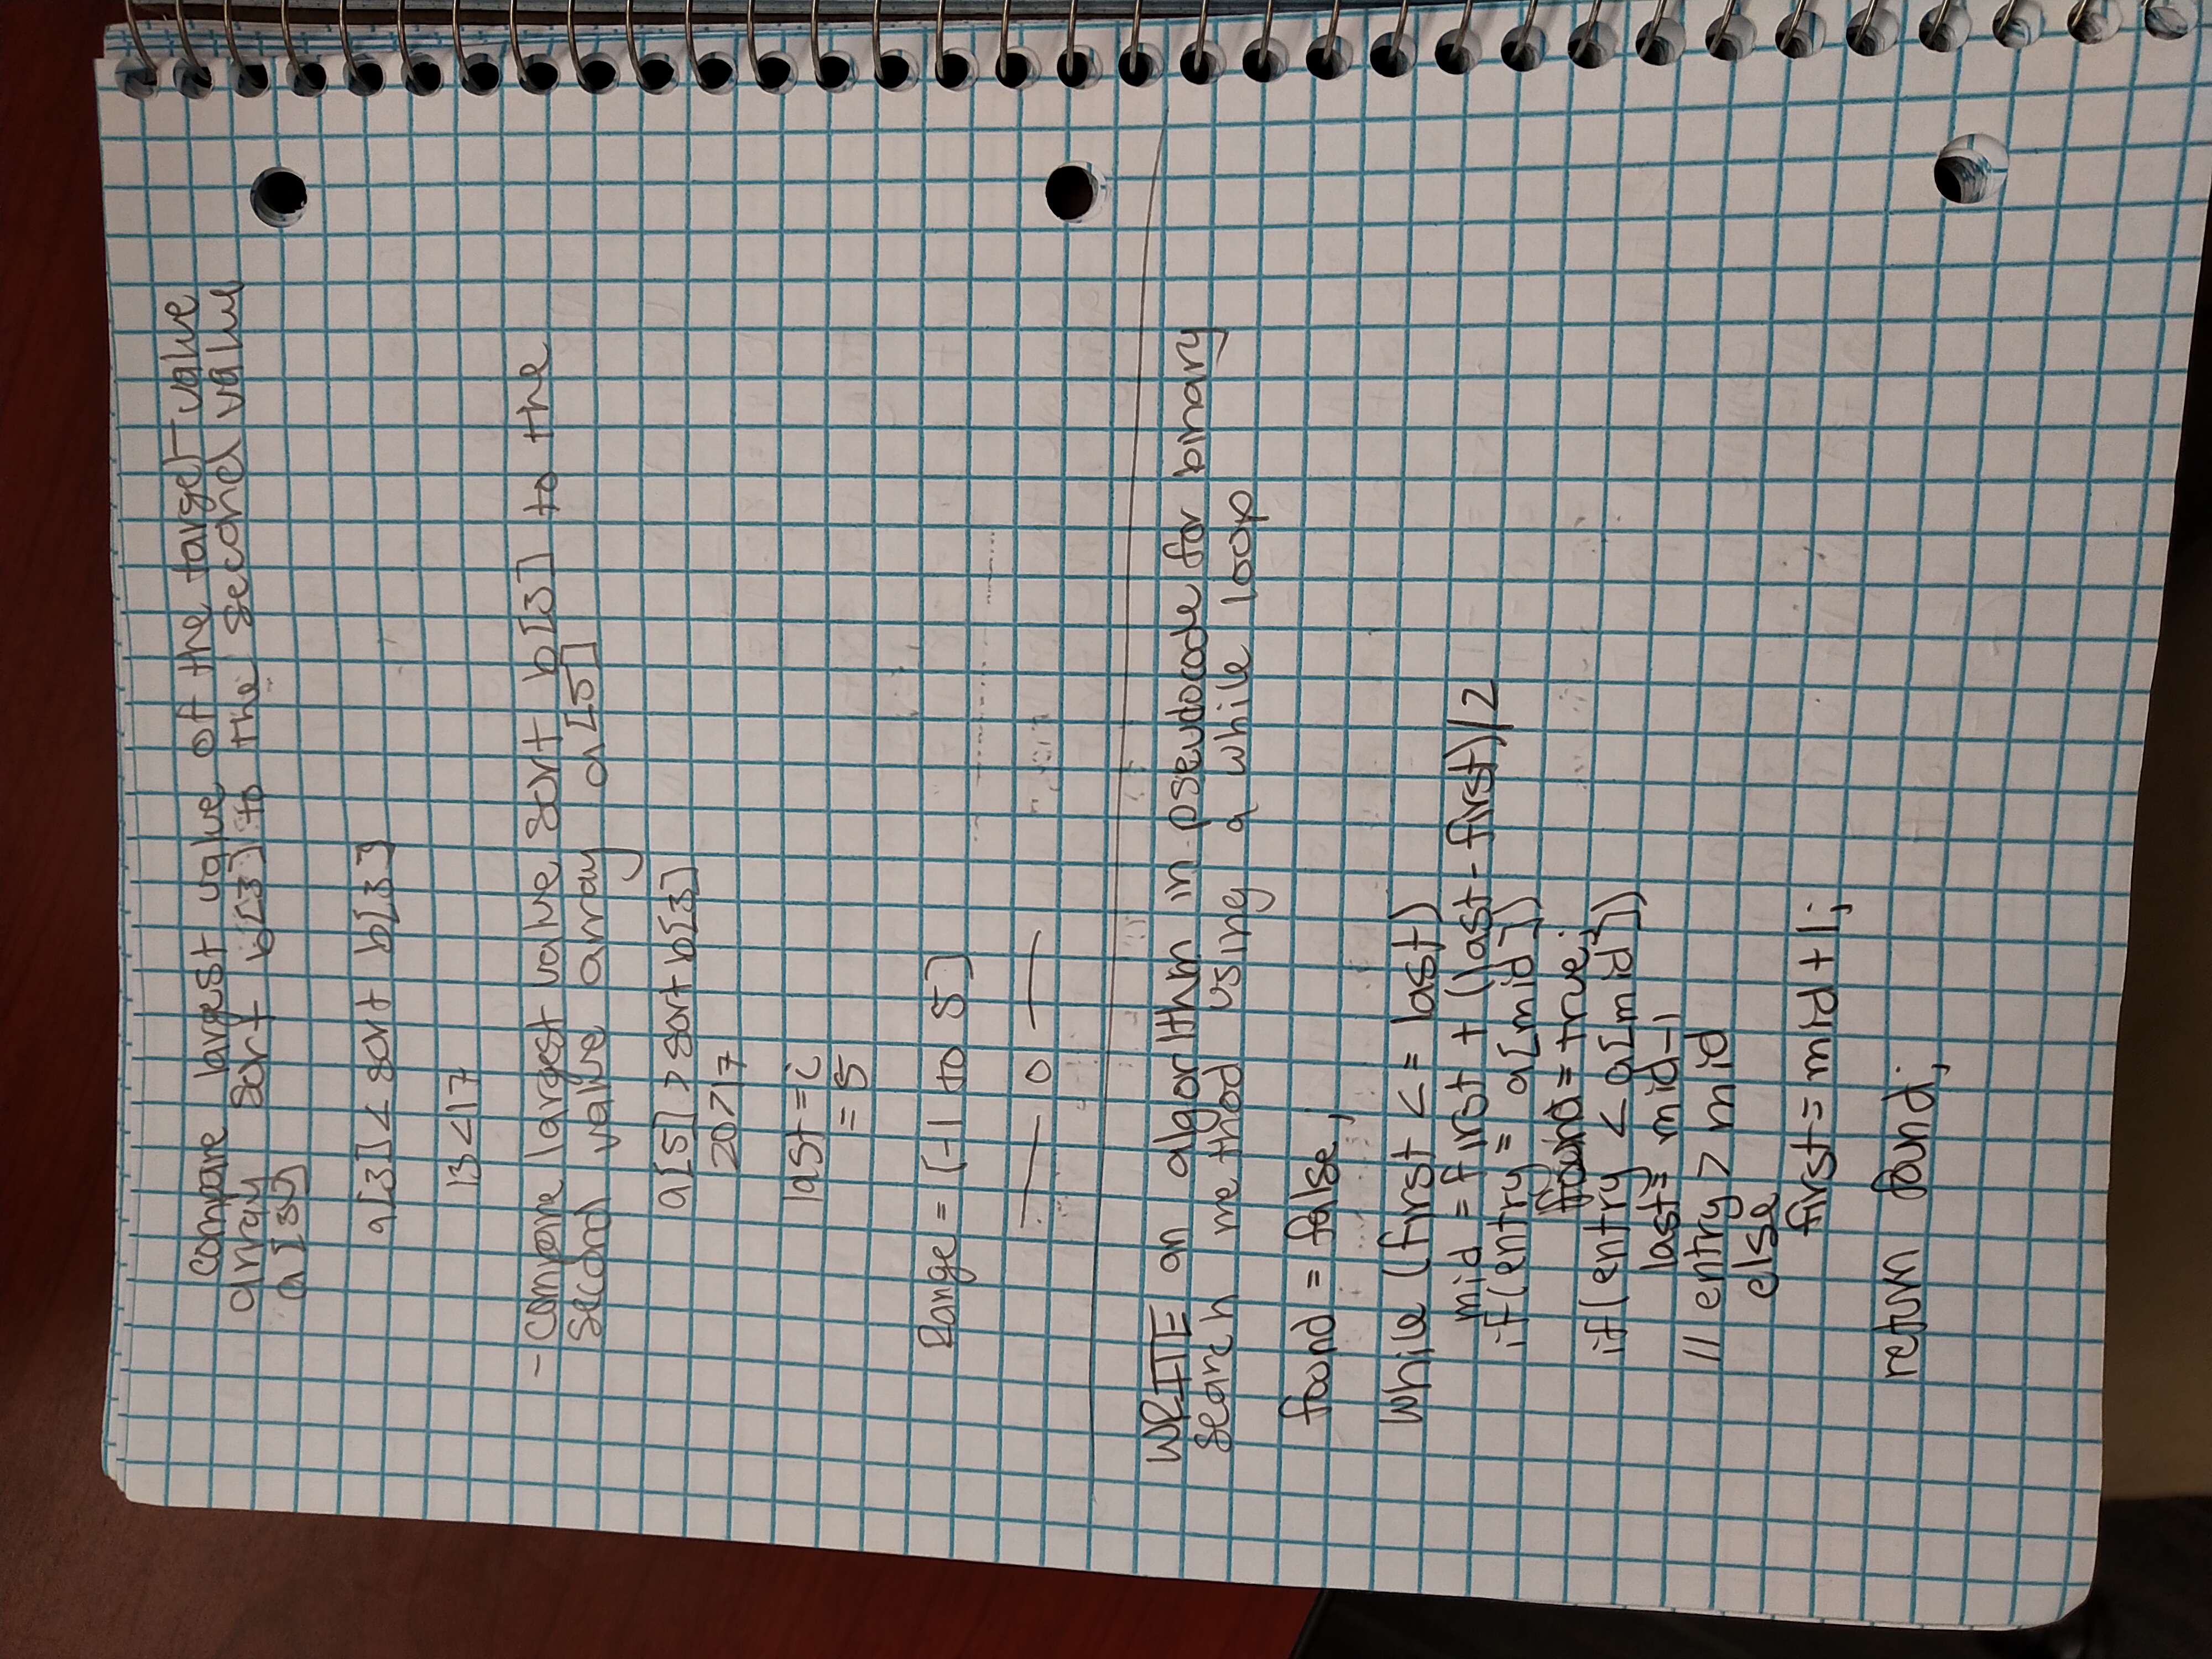 compare largest value of the target value
array sort b[3] to the second value
a[3]
a[3] < sort b[3]
13<17
- compare largest value sort b[3] to the
second value array a[5]
a[5] > sort b[3]
20>17
last = i
= 5
Range = [-1 to 5]
— 0 —
WRITE an algorithm in pseudocode for binary
search method using a while loop
found = false;
while (first <= last)
mid = first + (last - first)/2
if(entry = a[mid])
found = true;
if(entry < a[mid])
last = mid-1
// entry > mid
else
first = mid + 1;
return found;